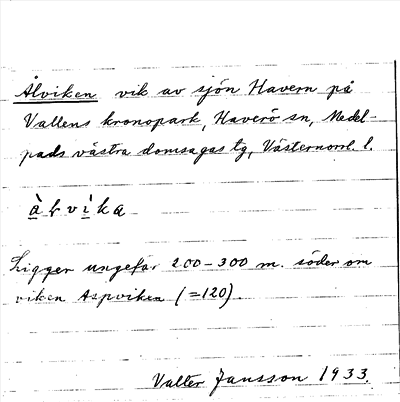 Ålviken vik av sjön Havern på
Vallens kronopark, Haverö sn, Medel-
pads västra domsagas tg, Västernorrl. l.
Ligger ungefär 200–300 m. söder om
viken Aspviken (=120).
Valter Jansson 1933.